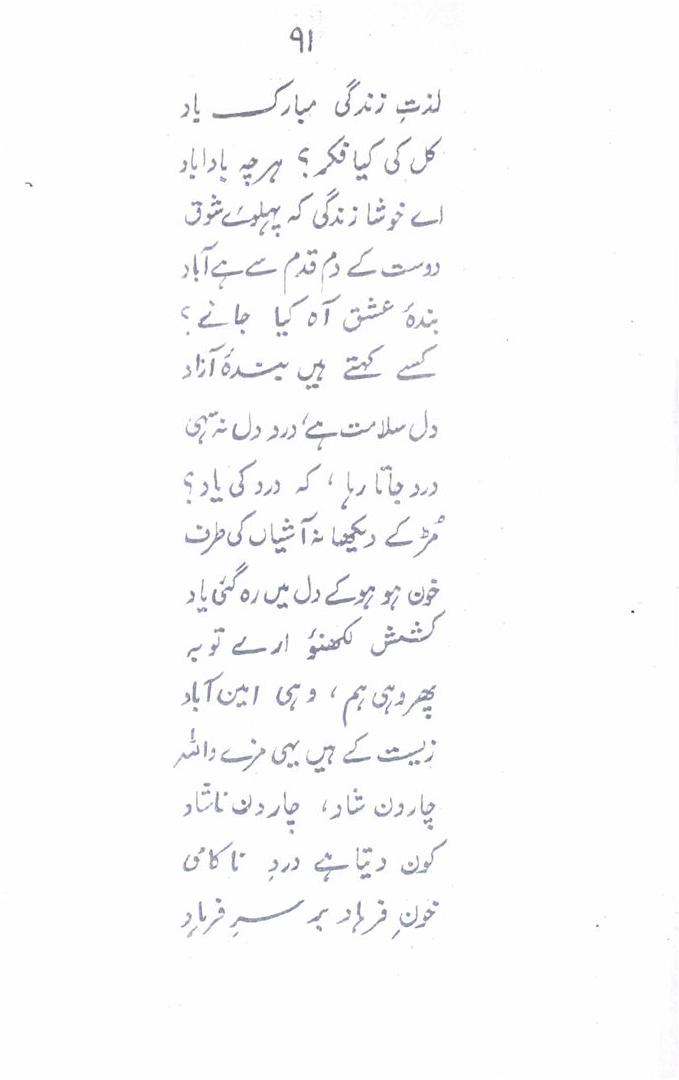 ۹۱
لذتِ زندگی مبارک باد
کل کی کیا فکر؟ ہرچہ بادا باد
اے خوشا زندگی کہ پہلوئے شوق
دوست کے دم قدم سے ہے آباد
بندۂ عشق آہ کیا جانے؟
کسے کہتے ہیں بندۂ آزاد
دل سلامت ہے، درد دل نہ سہی
درد جاتا رہا، کہ درد کی یاد؟
مڑ کے دیکھا نہ آشیاں کی طرف
خون ہو ہو کے دل میں رہ گئی یاد
کشمش لکھنؤ ارے توبہ
پھر وہی ہم، وہی امین آباد
زیست کے ہیں یہی مزے واللہ
چار دن شاد، چار دن ناشاد
کون دیتا ہے دردِ ناکامی
خونِ فرہاد بر سرِ فرہاد